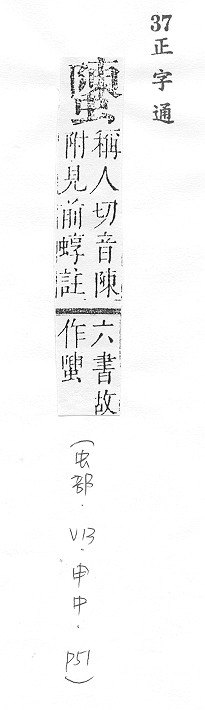 37 正字通
稱人切音陳
附見前蜳註
六書故
作
(虫部.V13.申中.P51)